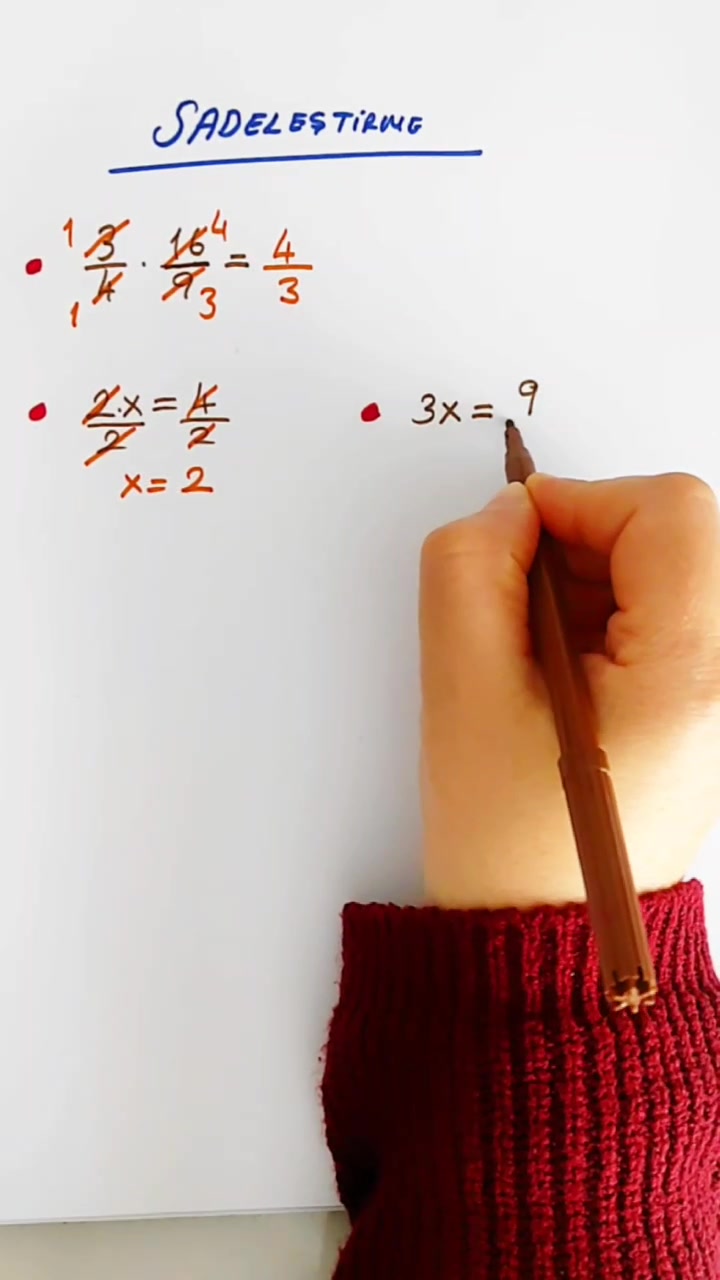 SADELEŞTİRME
1 3/4 1 · 16 4/9 3 = 4/3
2·x/2 = 4/2
x = 2
3x = 9